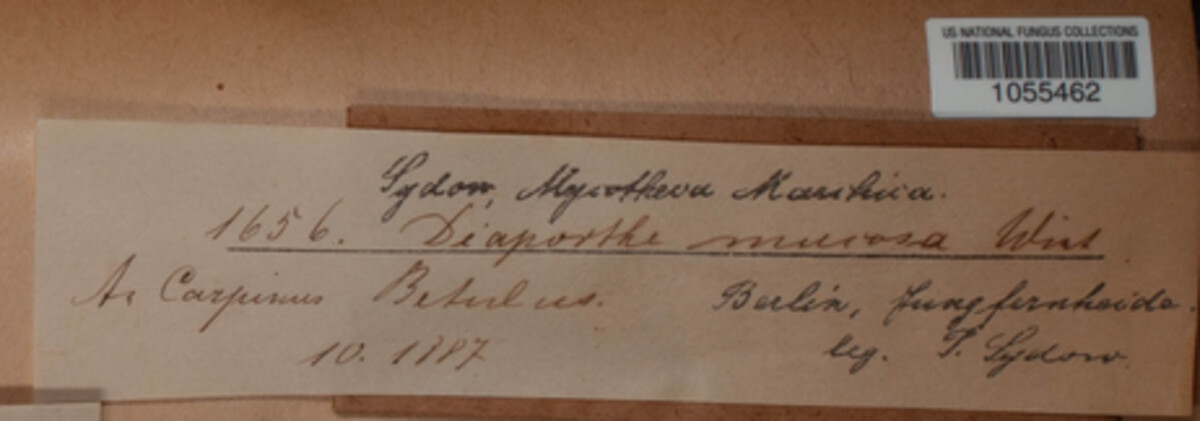 US NATIONAL FUNGUS COLLECTIONS
1055462
Sydow, Mycotheca Marchica.
1656. Diaporthe mucosa Wint
An Carpinus Betulus.
10. 1887
Berlin, Jungfernheide.
leg. P. Sydow.